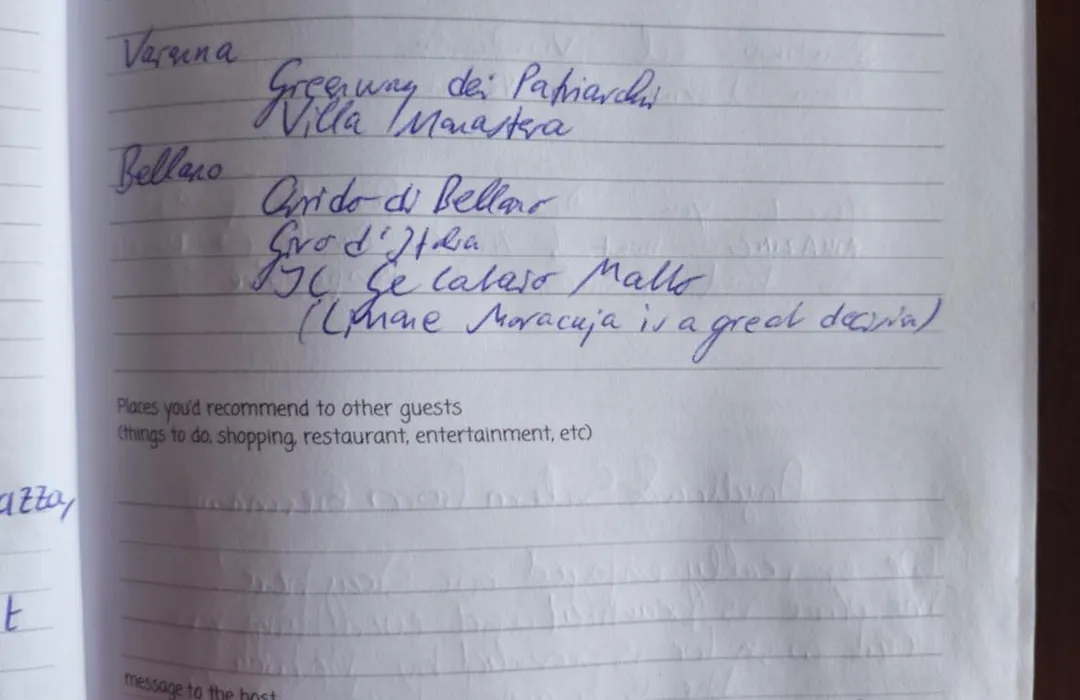 Varenna
Greenway dei Patriarchi
Villa Monastero
Bellano
Orrido di Bellano
Giro d'Italia
Il Gelataio Matto
(Limone Maracuja is a great decision)
Places you'd recommend to other guests
(things to do, shopping, restaurant, entertainment, etc)
azza,
t
message to the host